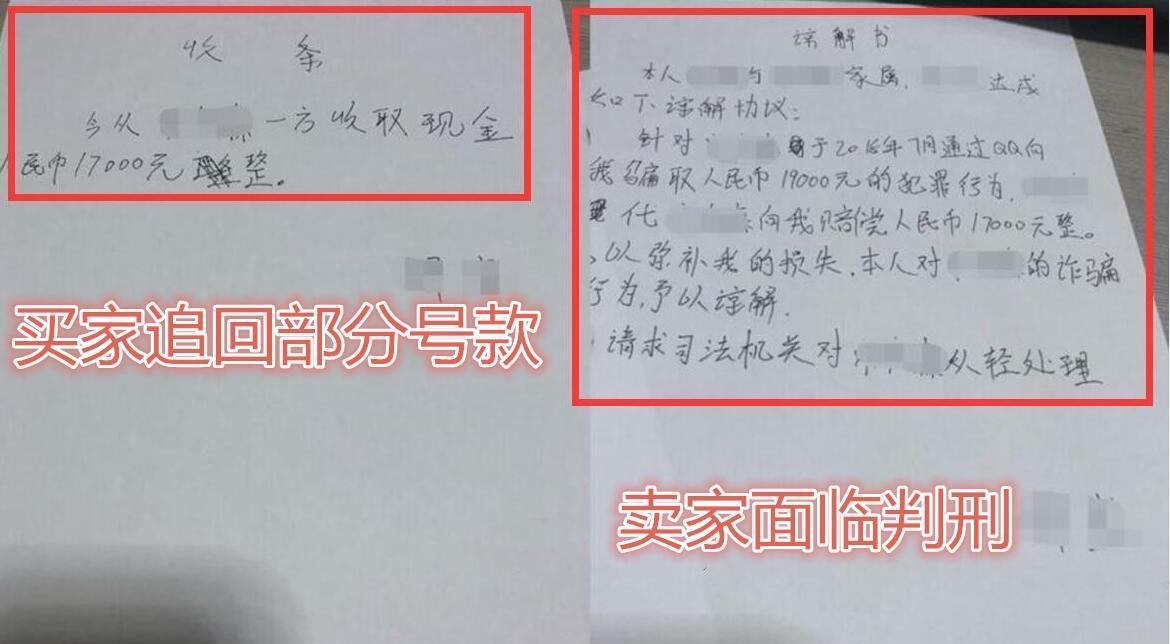 收 条
今从 一方收取现金
人民币17000元整。
买家追回部分号款
谅解书
本人 与 家属, 达成
如下谅解协议:
针对 于2016年7月通过QQ向
我骗取人民币19000元的犯罪行为,
代 向我赔偿人民币17000元整。
以弥补我的损失.本人对 的诈骗
行为,予以谅解.
请求司法机关对 从轻处理
卖家面临判刑